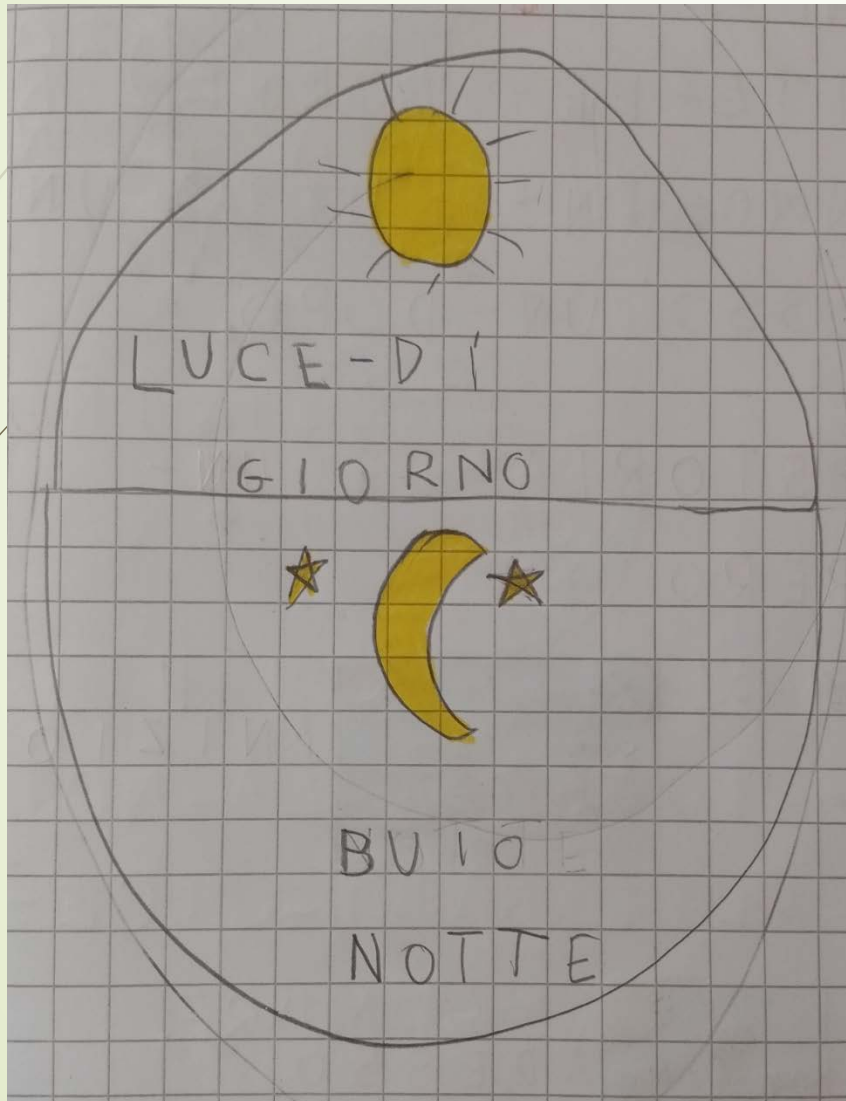 LUCE-DI
GIORNO
BUIO
NOTTE